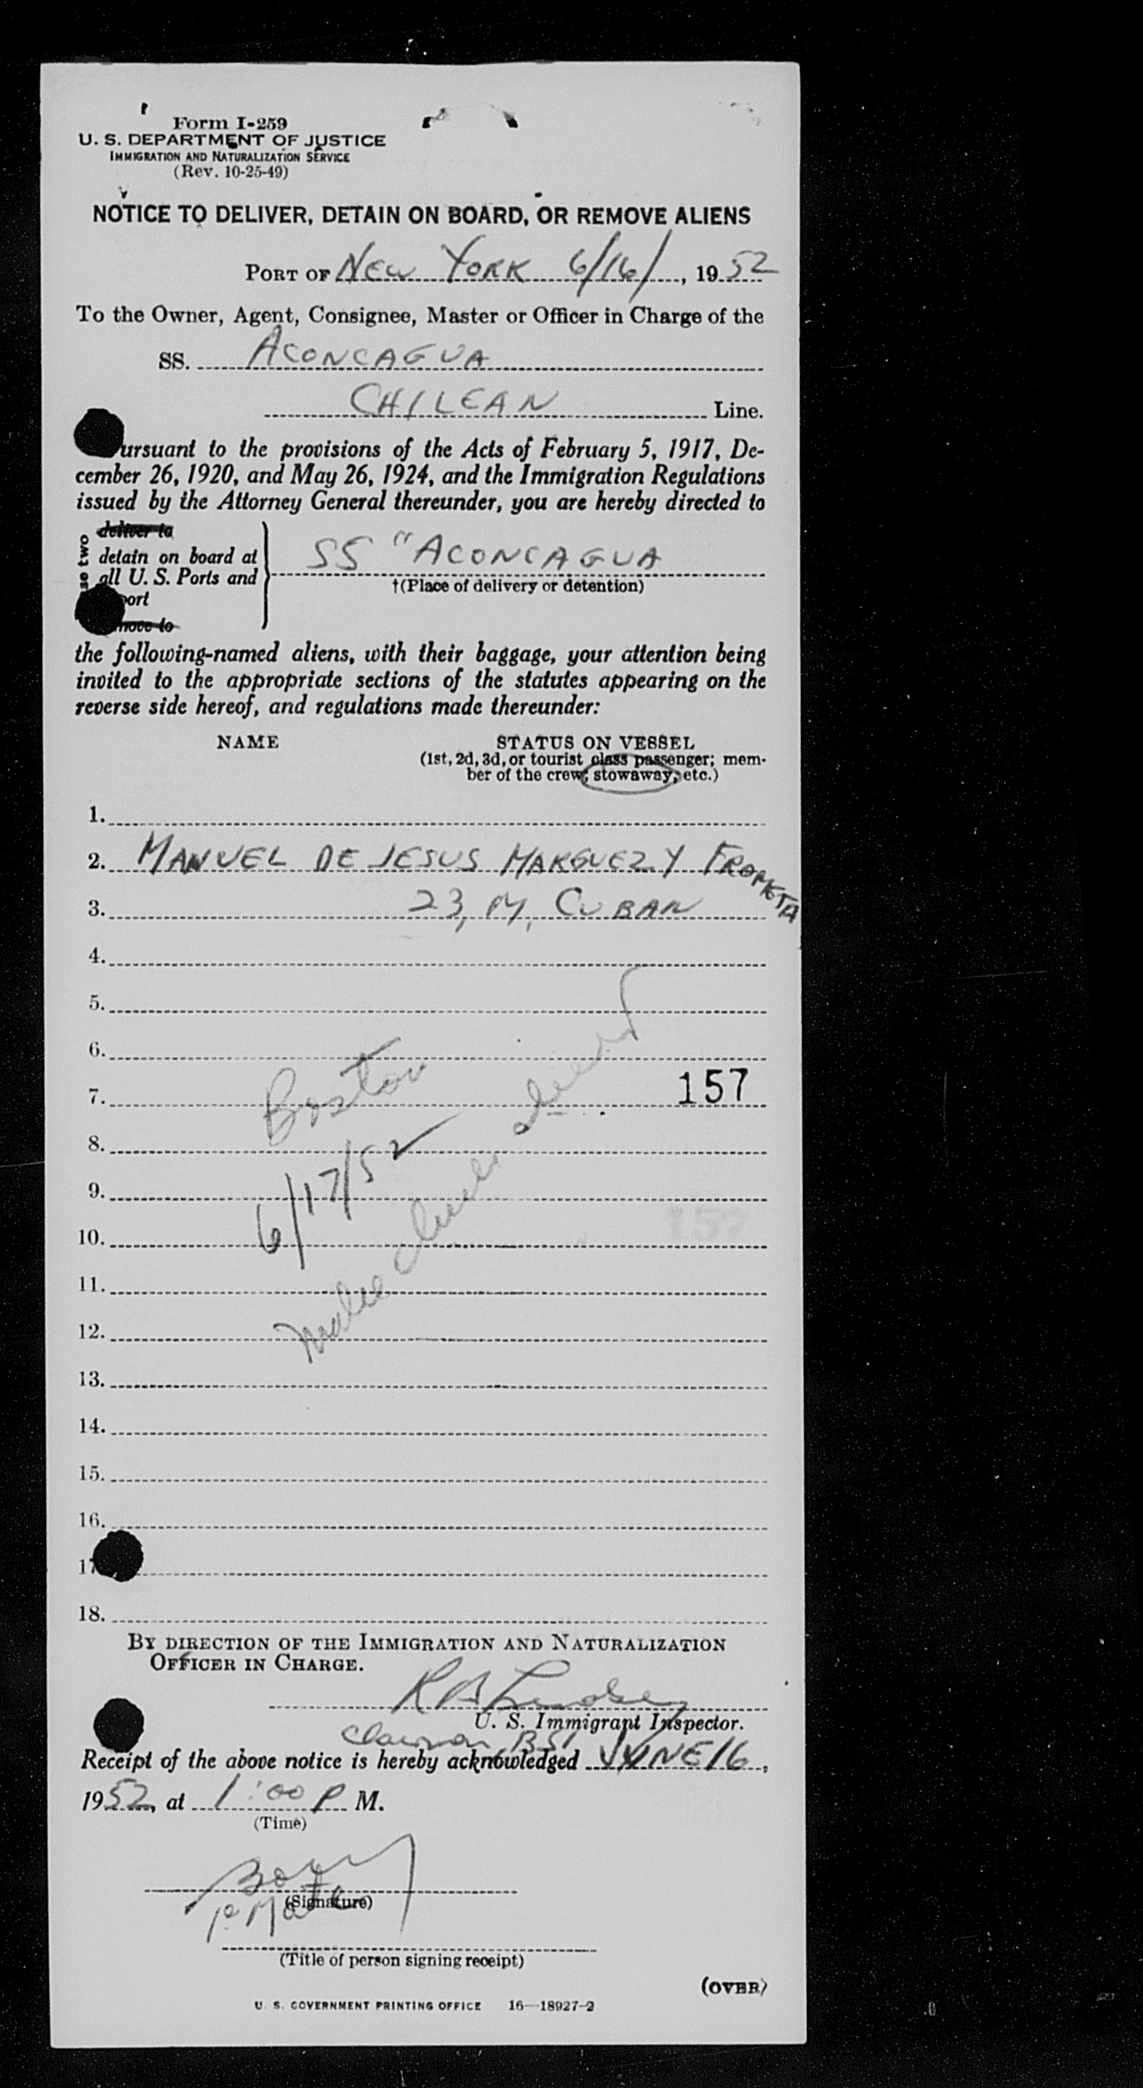 Form I-259
U. S. DEPARTMENT OF JUSTICE
IMMIGRATION AND NATURALIZATION SERVICE
(Rev. 10-25-49)
NOTICE TO DELIVER, DETAIN ON BOARD, OR REMOVE ALIENS
PORT OF NEW YORK 6/16/, 1952
To the Owner, Agent, Consignee, Master or Officer in Charge of the
SS. ACONCAGUA
CHILEAN Line.
ursuant to the provisions of the Acts of February 5, 1917, De-
cember 26, 1920, and May 26, 1924, and the Immigration Regulations
issued by the Attorney General thereunder, you are hereby directed to
deliver to
detain on board at
all U. S. Ports and
ort
move to
se two
SS "ACONCAGUA
†(Place of delivery or detention)
the following-named aliens, with their baggage, your attention being
invited to the appropriate sections of the statutes appearing on the
reverse side hereof, and regulations made thereunder:
NAME STATUS ON VESSEL
(1st, 2d, 3d, or tourist class passenger; mem-
ber of the crew; stowaway; etc.)
1.
2. MANUEL DE JESUS MARGUEZ Y FROMETA
3. 23, M, CUBAN
4.
5.
6.
7. 157
8.
9.
10.
11.
12.
13.
14.
15.
16.
17
18.
Boston
6/17/52
157
BY DIRECTION OF THE IMMIGRATION AND NATURALIZATION
OFFICER IN CHARGE.
U. S. Immigrant Inspector.
Receipt of the above notice is hereby acknowledged JUNE 16,
1952, at 1:00 P M.
(Time)
(Signature)
1º Mate
(Title of person signing receipt)
(OVER)
U. S. GOVERNMENT PRINTING OFFICE 16—18927-2